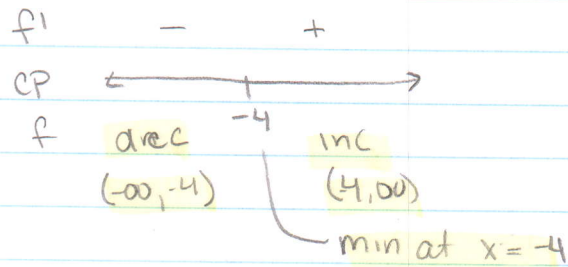 f' - +
CP
-4
f drec inc
(-∞, -4) (-4, ∞)
min at x = -4